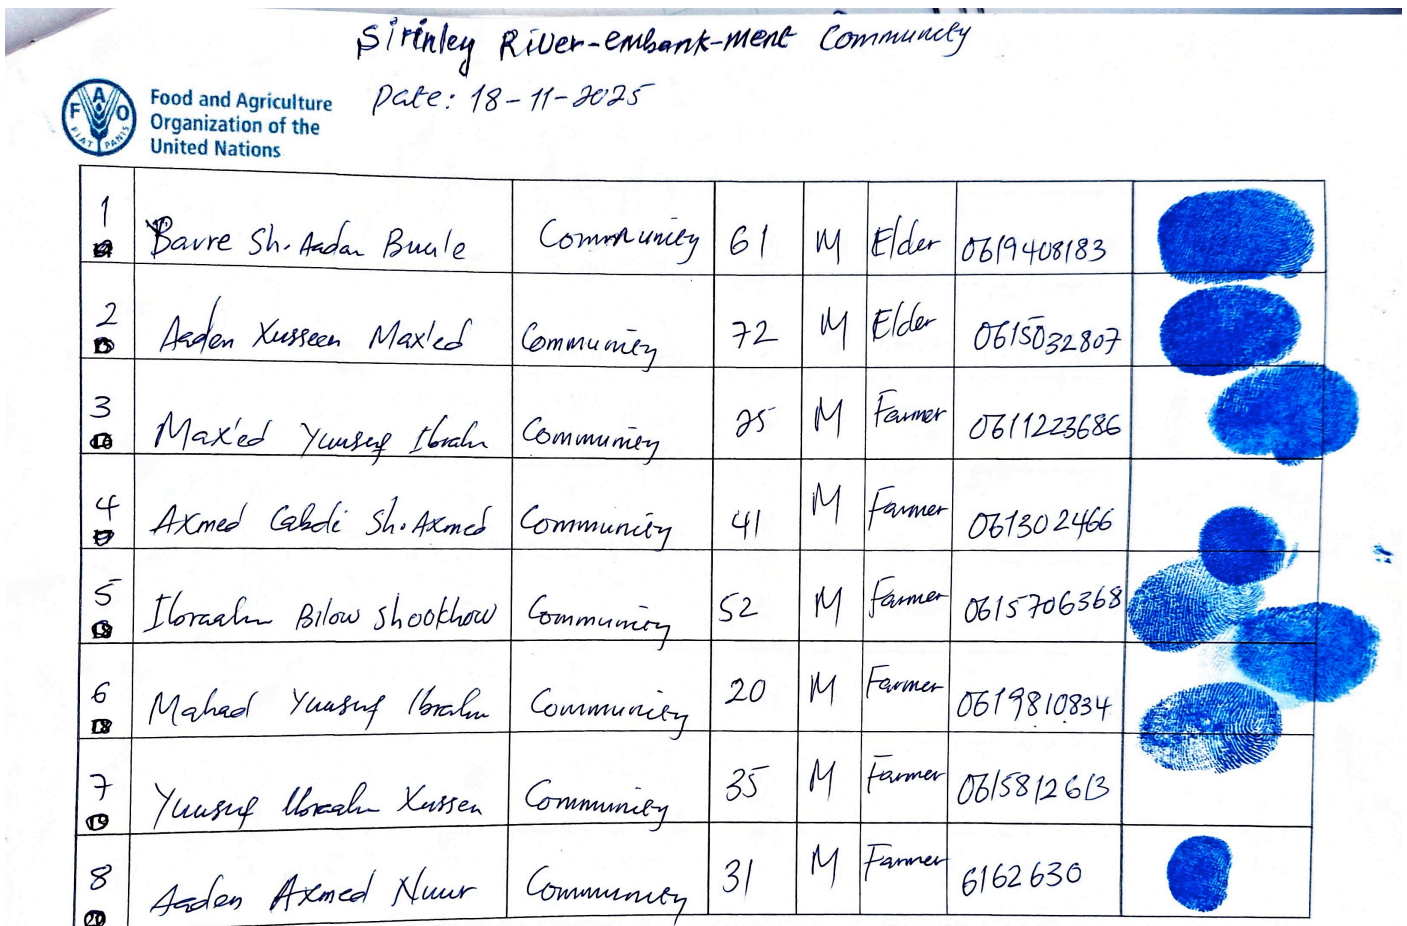 Sirinley River-embank-ment Community
Date: 18-11-2025
FAO
FIAT PANIS
Food and Agriculture
Organization of the
United Nations
1 Barre Sh. Aadan Buule Community 61 M Elder 0619408183
2 Aaden Xusseen Max'ed Community 72 M Elder 0615032807
3 Max'ed Yuusuf Ibrahn Community 25 M Farmer 0611223686
4 Axmed Cabdi Sh. Axmed Community 41 M Farmer 061302466
5 Ibraahn Bilow Shookhow Community 52 M Farmer 0615706368
6 Mahad Yuusuf Ibrahn Community 20 M Farmer 0619810834
7 Yuusuf Ibraahn Xussen Community 35 M Farmer 0615812613
8 Aaden Axmed Nuur Community 31 M Farmer 6162630